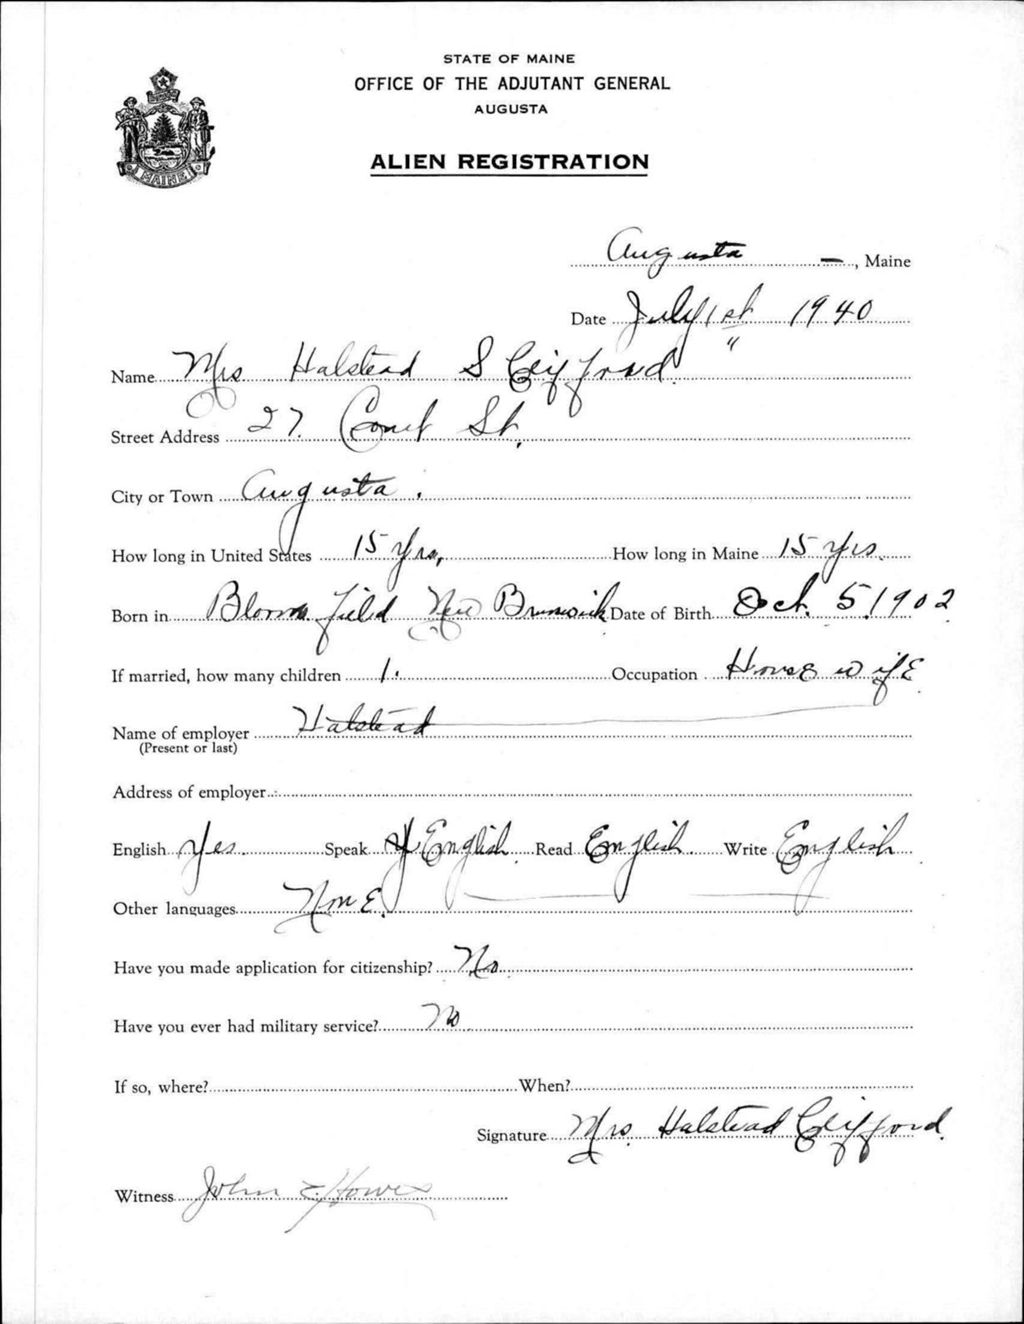 STATE OF MAINE
OFFICE OF THE ADJUTANT GENERAL
AUGUSTA
MAINE
ALIEN REGISTRATION
Augusta –, Maine
Date July 1st 1940
"
Name Mrs Halstead S Clifford
Street Address 27 Court St.
City or Town Augusta.
How long in United States 15 yrs, How long in Maine 15 yrs
Born in Bloomfield New Brunswick Date of Birth Oct. 5, 1902
If married, how many children 1. Occupation House wifE
Name of employer Halstead
(Present or last)
Address of employer
English Yes Speak English Read English Write English
Other languages NonE.
Have you made application for citizenship? No
Have you ever had military service? No
If so, where? When?
Signature Mrs. Halstead Clifford.
Witness John E Howe